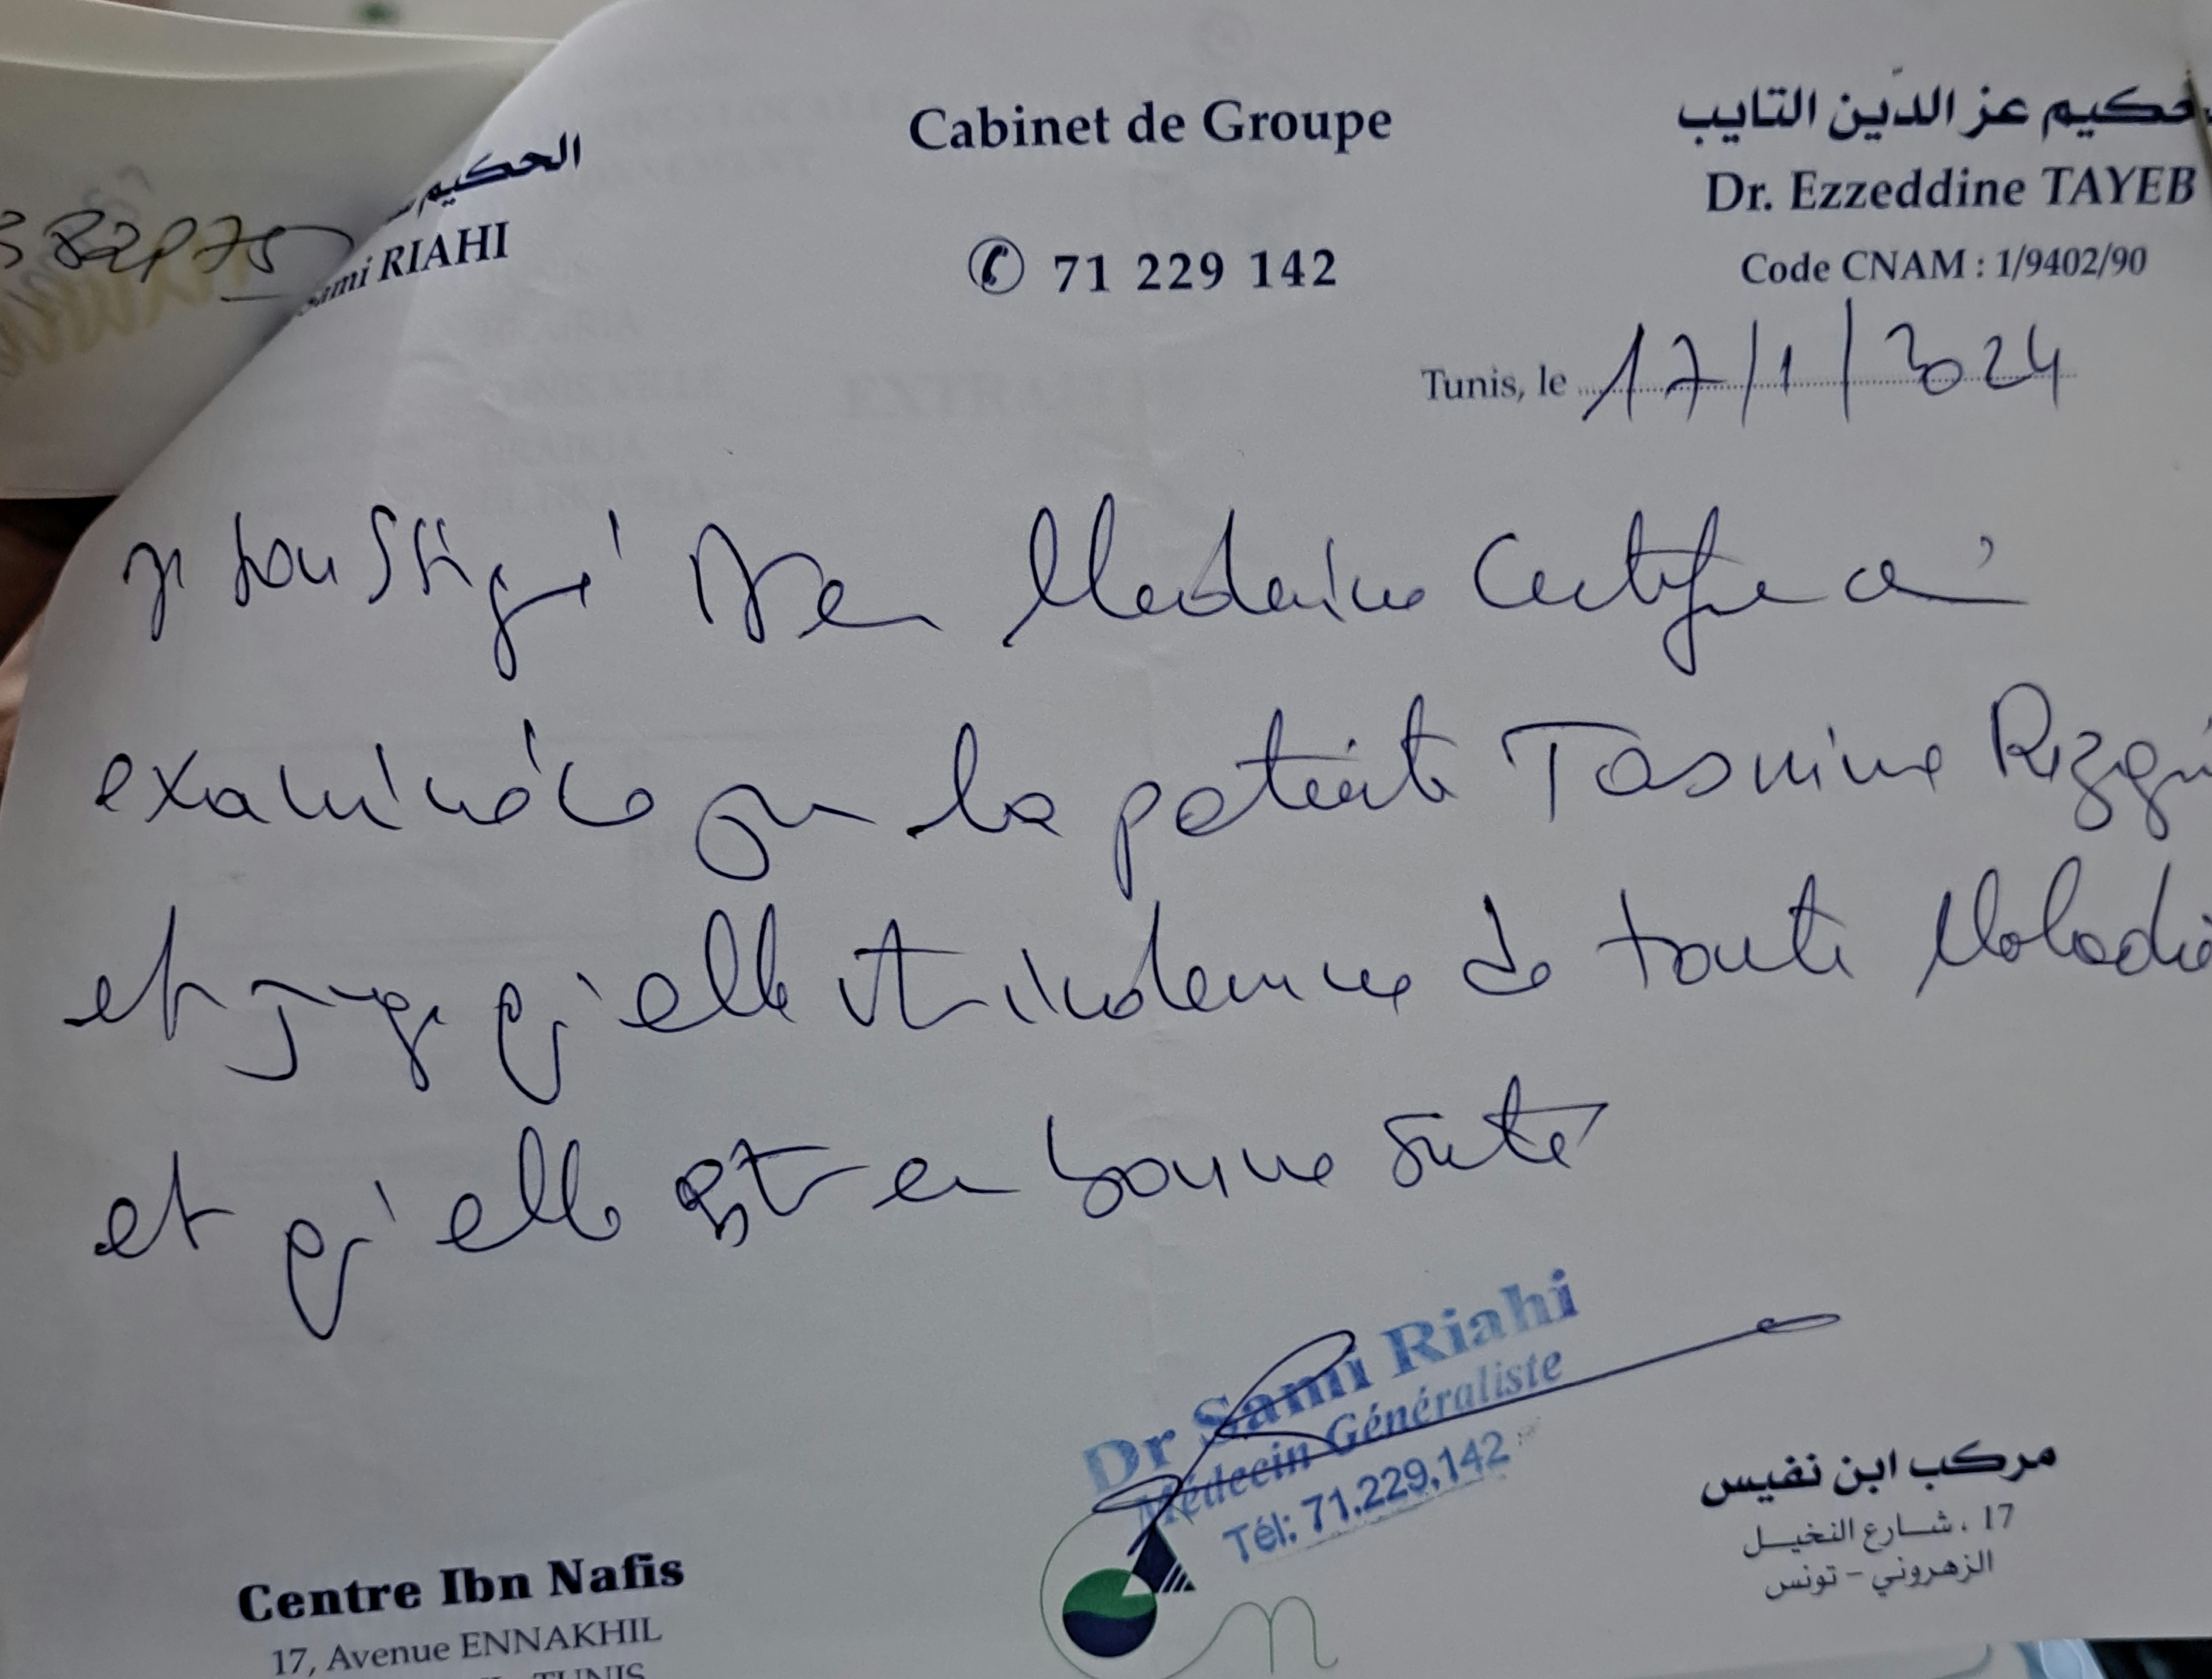 382975
الحكيم
Sami RIAHI
Cabinet de Groupe
71 229 142
الحكيم عز الدّين التايب
Dr. Ezzeddine TAYEB
Code CNAM : 1/9402/90
Tunis, le 17/1/2024
Je soussigné Dr en Médecine Certifie avoir
examiné ce jour la patiente Tasmine Rizgui
et juge qu'elle est indemne de toute Maladie
et qu'elle est en bonne santé
Dr Sami Riahi
Médecin Généraliste
Tél: 71.229.142
Centre Ibn Nafis
17, Avenue ENNAKHIL
TUNIS
مركب ابن نفيس
17 ، شارع النخيل
الزهروني - تونس